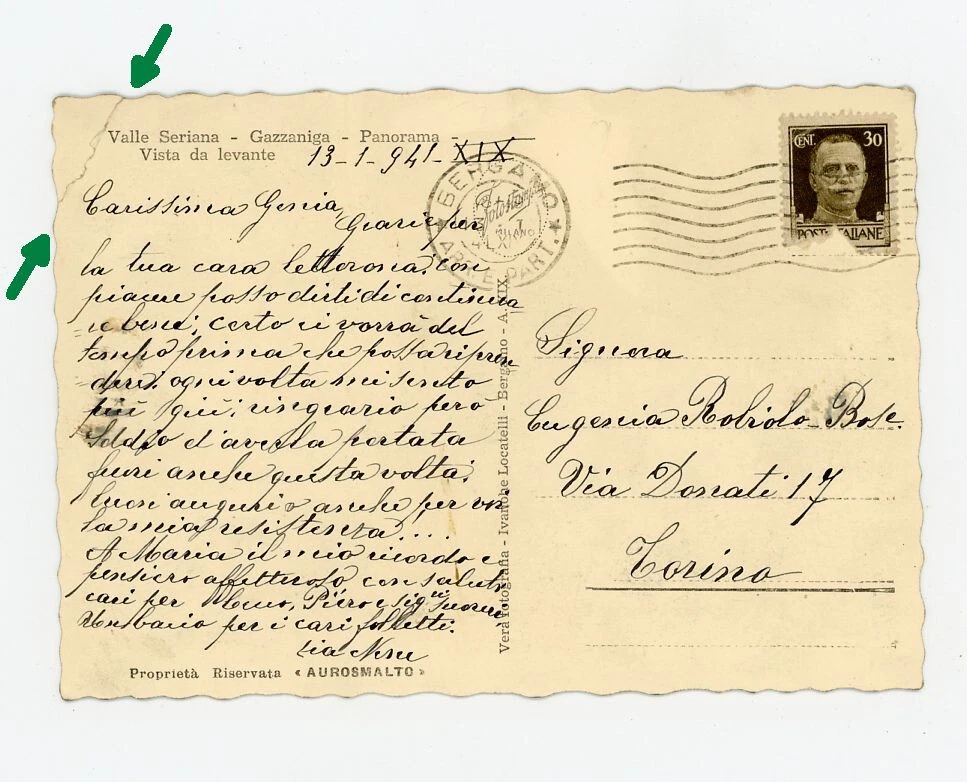 Valle Seriana - Gazzaniga - Panorama -
Vista da levante
13-1-941-XIX
BERGAMO
ARR. E PART.
Fotostampa
MILANO
CENT. 30
POSTE ITALIANE
Carissima Genia,
Grazie per
la tua cara letterona. Con
piacere posso dirti di continua
re bene; certo ci vorrà del
tempo prima che possa ripren
dere. ogni volta mi sento
più giù; ringrazio però
Iddio d'averla portata
fuori anche questa volta.
buoni auguri o anche per voi
la mia resistenza....
A Maria il mio ricordo e
pensiero affettuoso con saluti
cari per Piero e sig.
Un bacio per i cari folletti.
zia Nene
Vera fotografia - Ivanohe Locatelli - Bergamo - A. XIX
Proprietà Riservata « AUROSMALTO »
Signora
Eugenia Robiolo Bose.
Via Donati 17
Torino